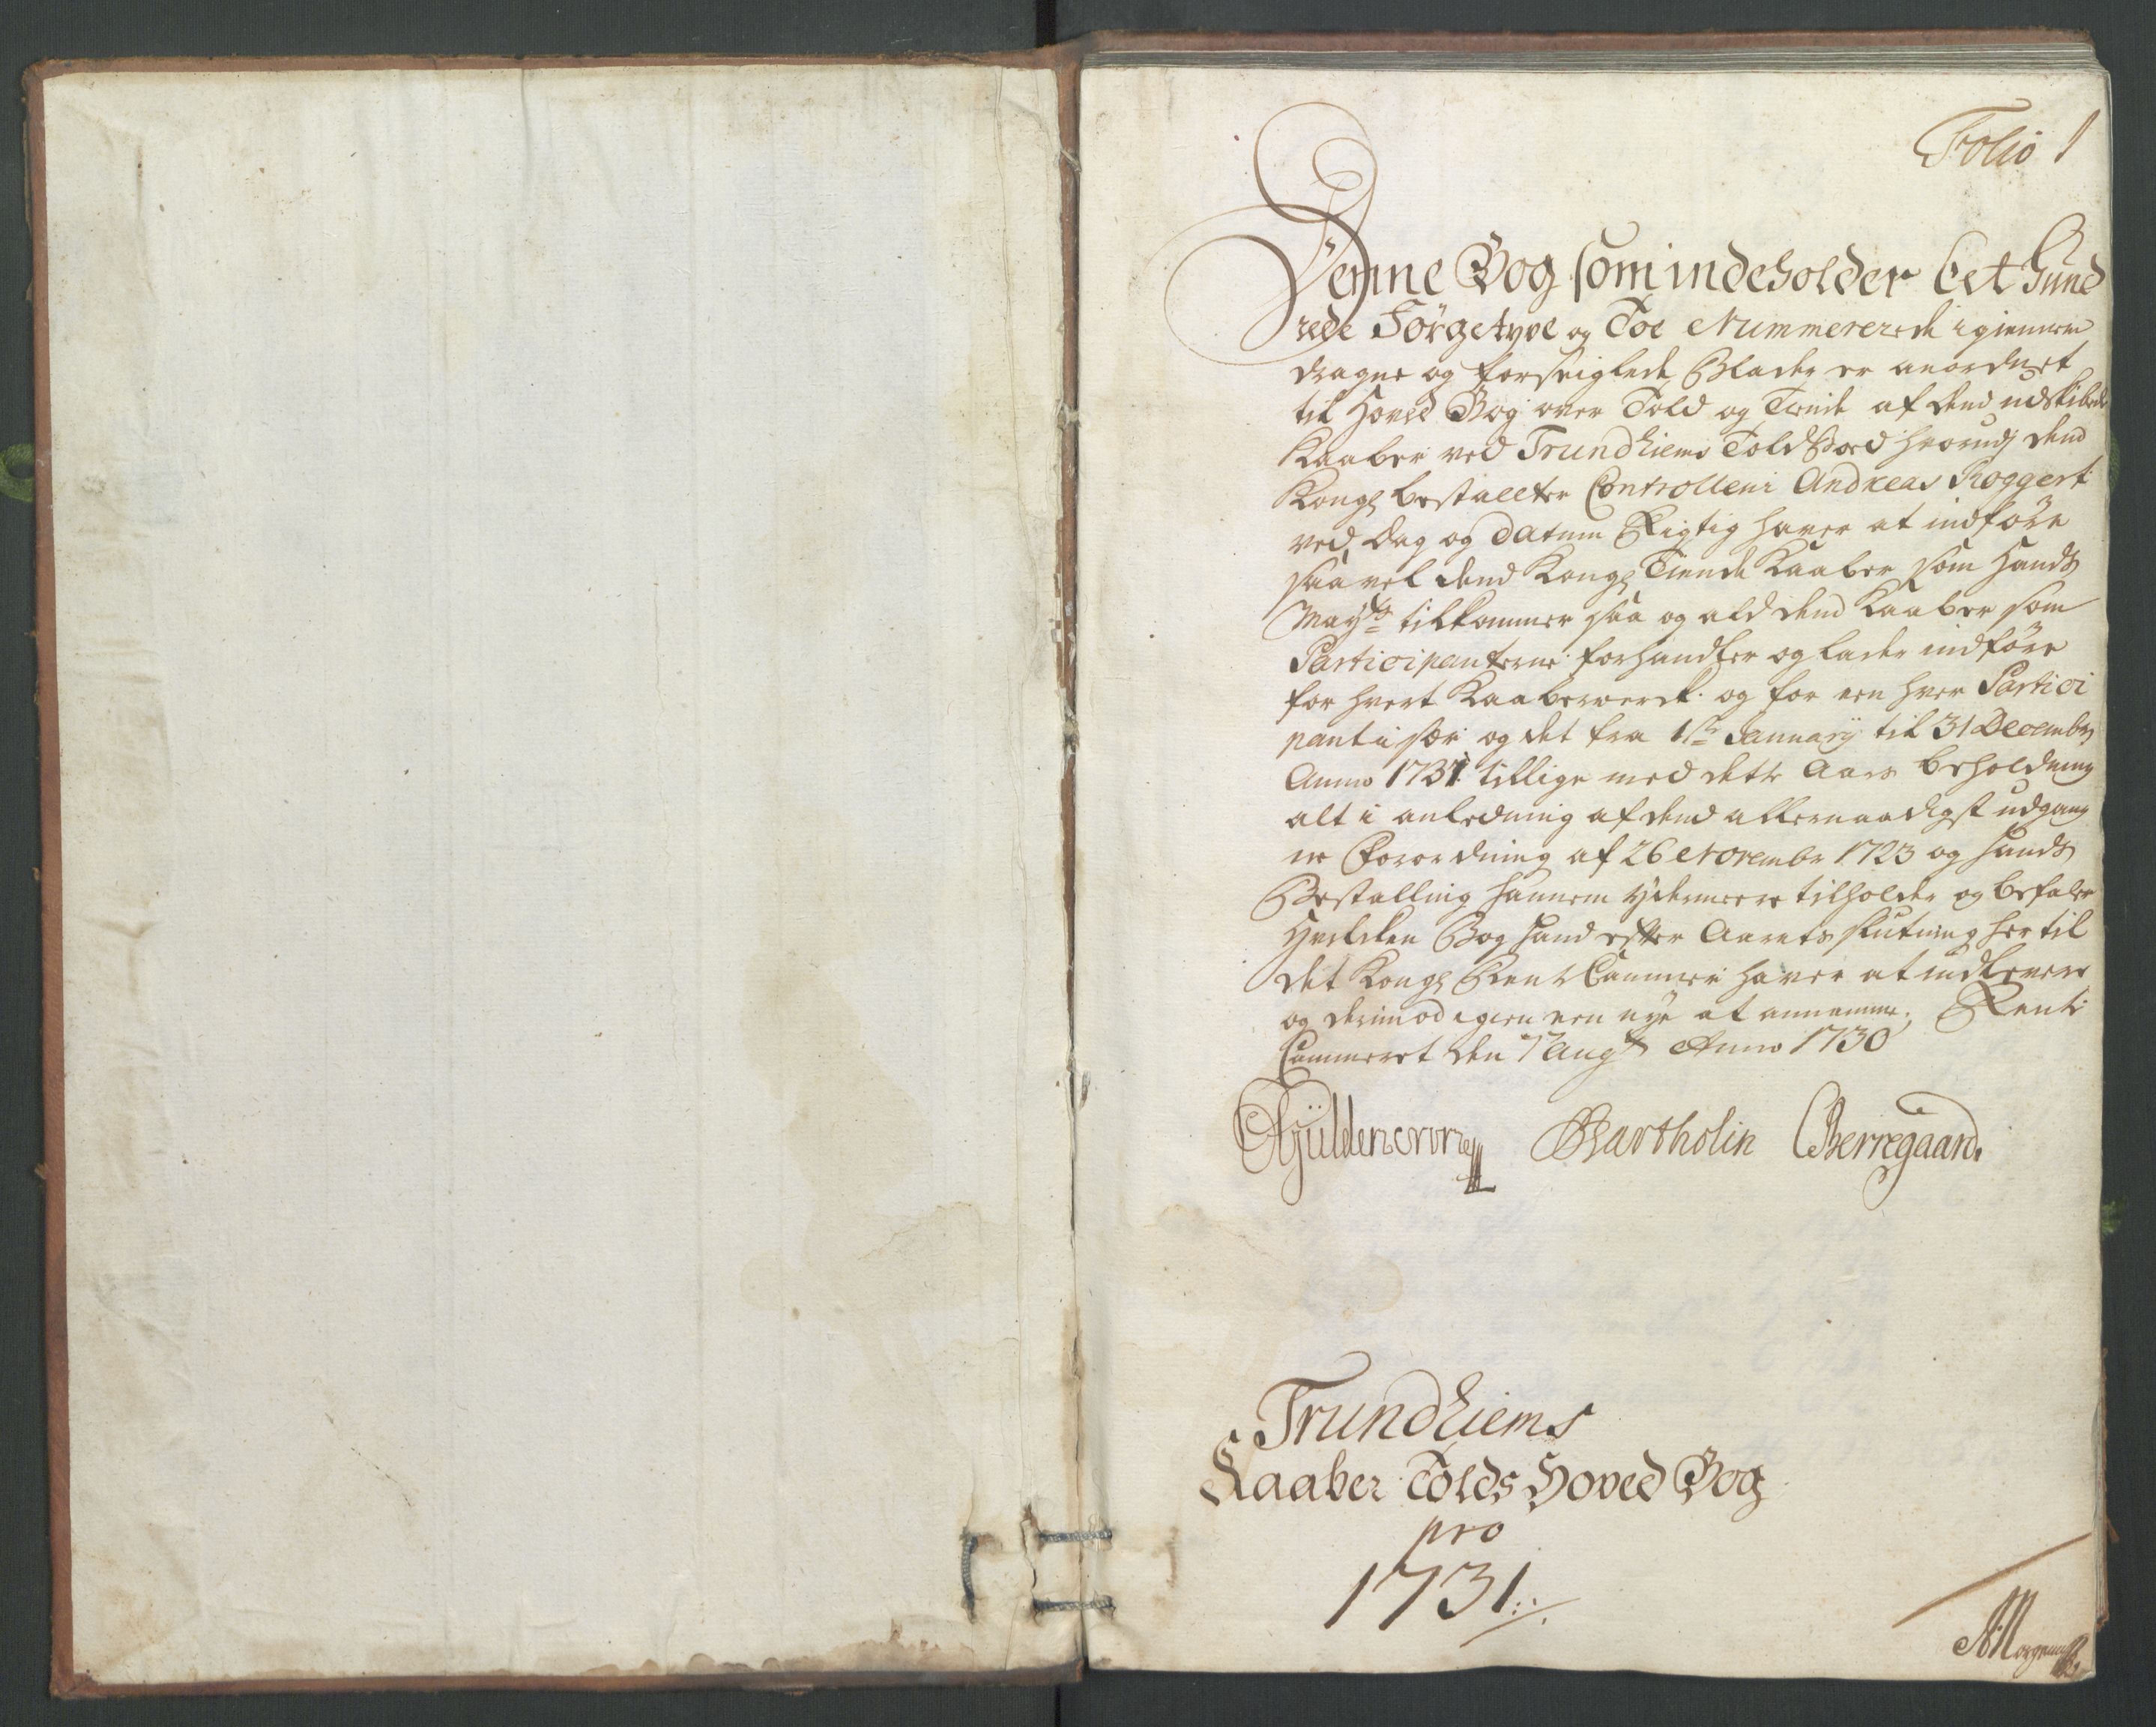 Folio 1
Denne Bog som indeholder Eet Hund
redeFörgetyve og Toe Nummererede igiennem
dragne og forseiglede Blader er anordnet
til Hoved Bog over Told og Tiende af dend udskibede
Kaaber ved Trundhiems Told Boed hvorudj dend
Kongl bestallter Controlleur Andreas Roggert
ved dag og datum Rigtig haver at indføre
saavel dend Kongl Tiende Kaaber som Hands
Mayts tilkommer saa og ald dend Kaaber som
Participanterne forhandler og lader indføre
for hvert Kaaberverk og for een hver Partici
pant i sær og det fra 1ste January til 31 Decembr
Anno 1731 tillige med dette Aars beholdning
alt i anledning af dend allernaadigst udgang
ne Forordning af 26 Novembr 1723 og hands
Bestalling hannem ydermeere tilholder og befaler
Hvilcken Bog hand efter Aarets slutning her til
det Kongl Rent Cammer haver at indlevere
og derimod igien een nye at annamme. Rente
Cammeret den 7 Augti Anno 1730
Gyldencrone Bartholin Berregaard.
Trundhiems
Kaaber Tolds Hoved Bog
pro
1731